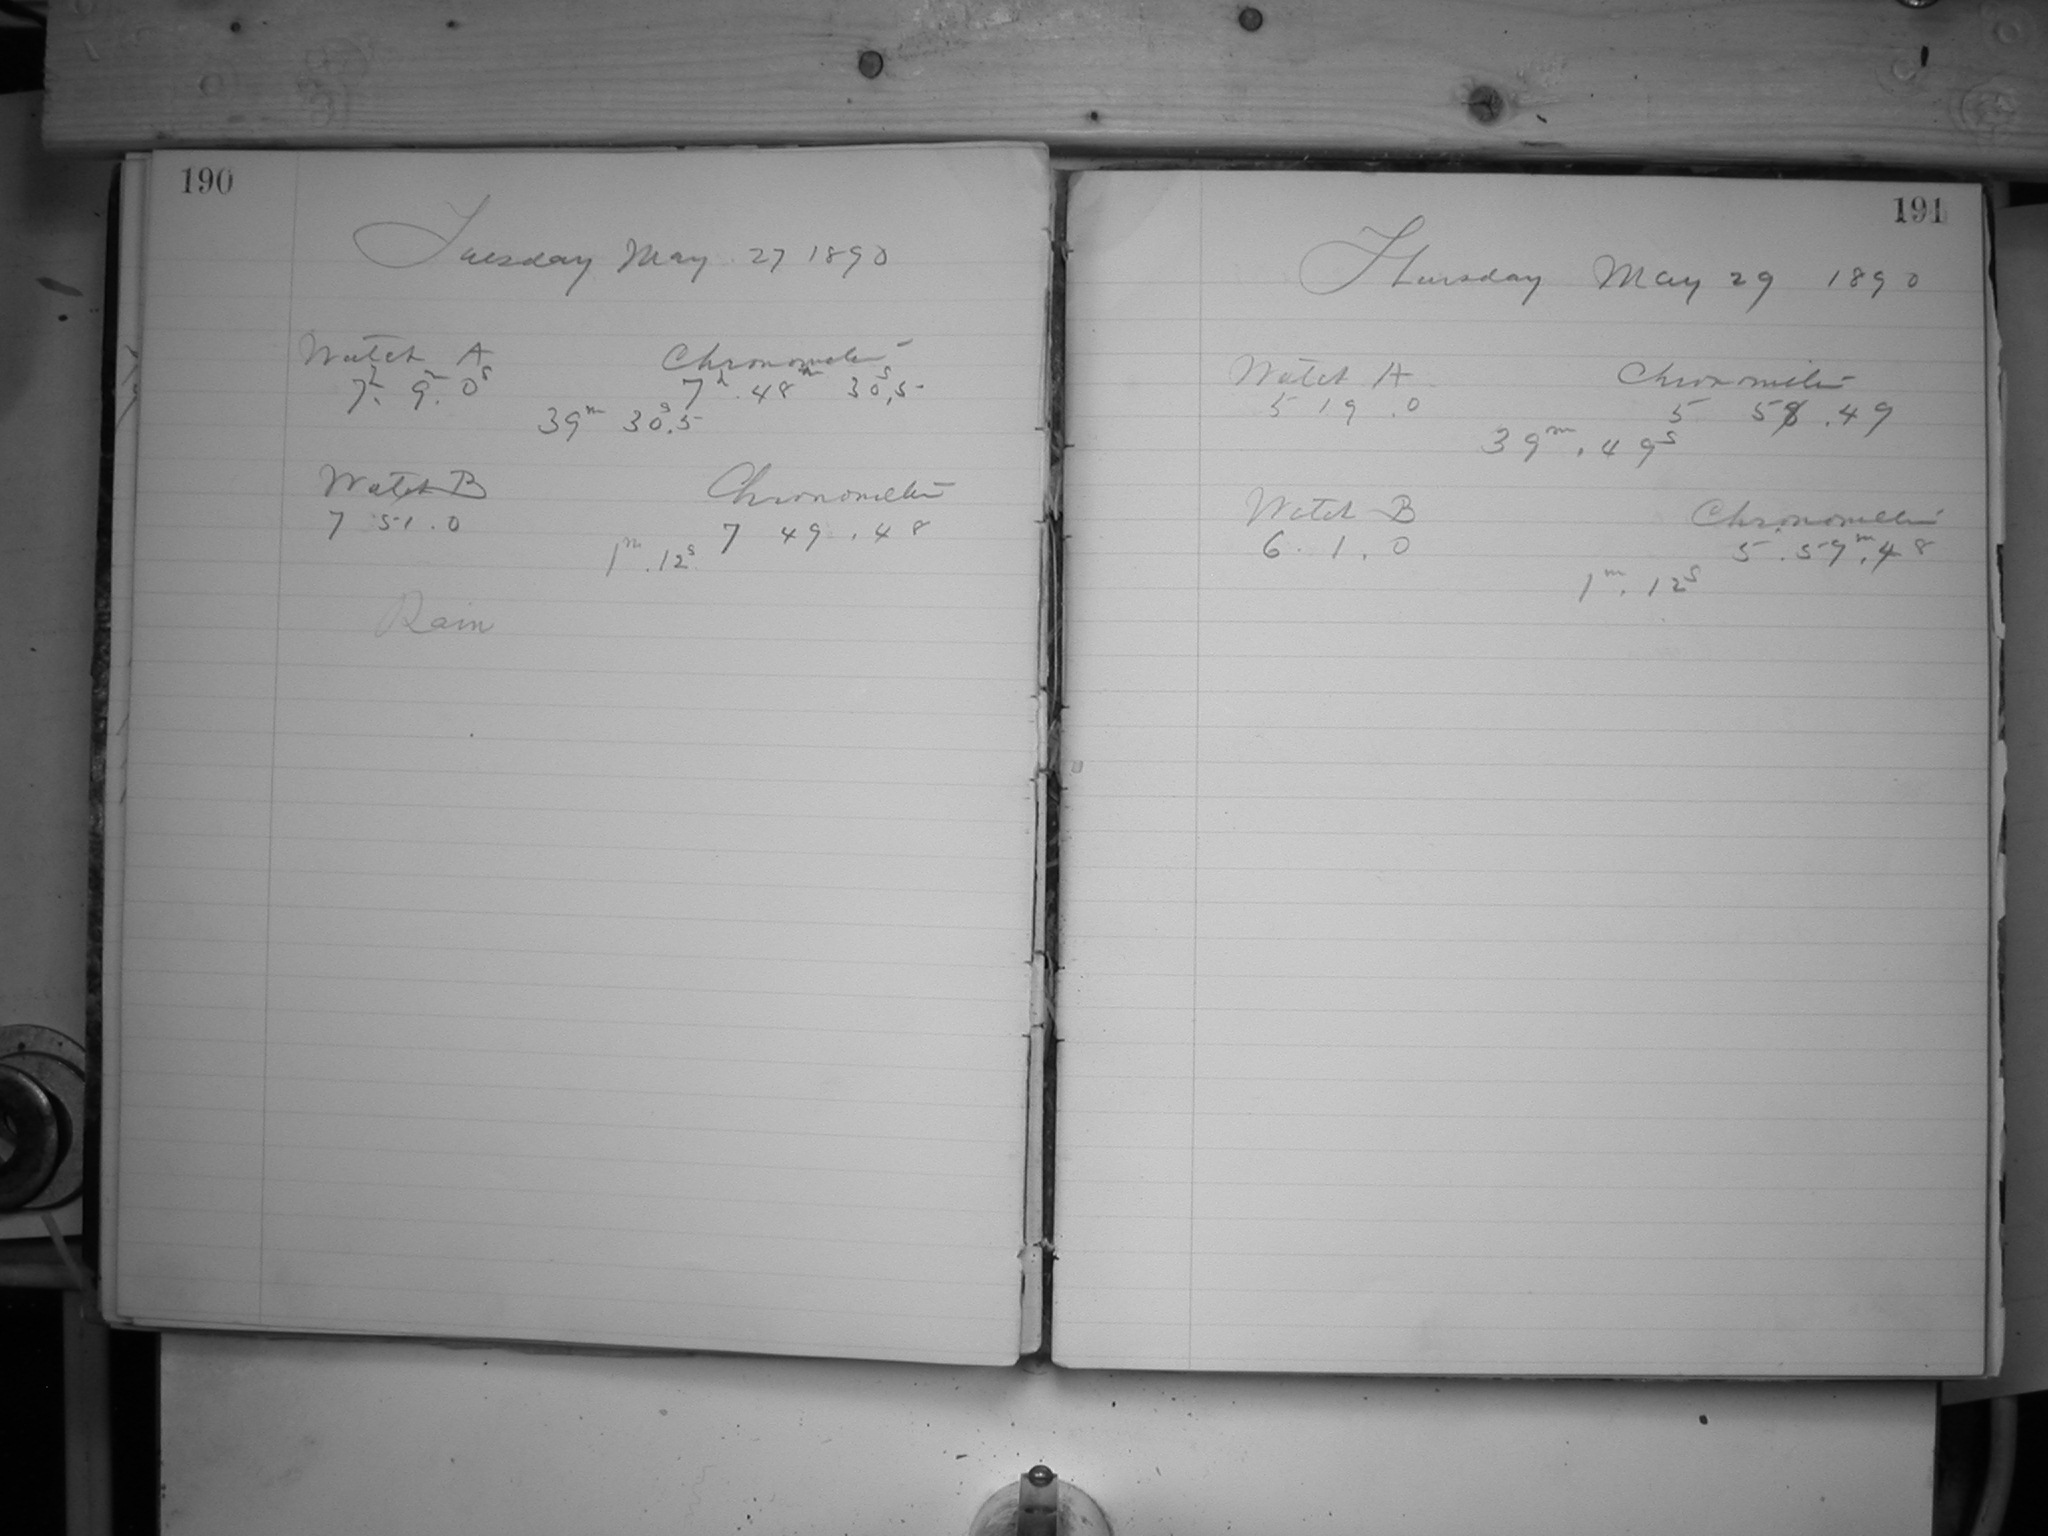 190
Tuesday May 27 1890
Watch A Chronometer
7h. 9m. 0s 7h. 48m 30s,5
39m 30s.5
Watch B Chronometer
7 51. 0 7 49 . 48
1m . 12s
Rain
191
Thursday May 29 1890
Watch A Chronometer
5 19 . 0 5 58 . 49
39m . 49s
Watch B Chronometer
6. 1. 0 5. 59m. 48
1m. 12s